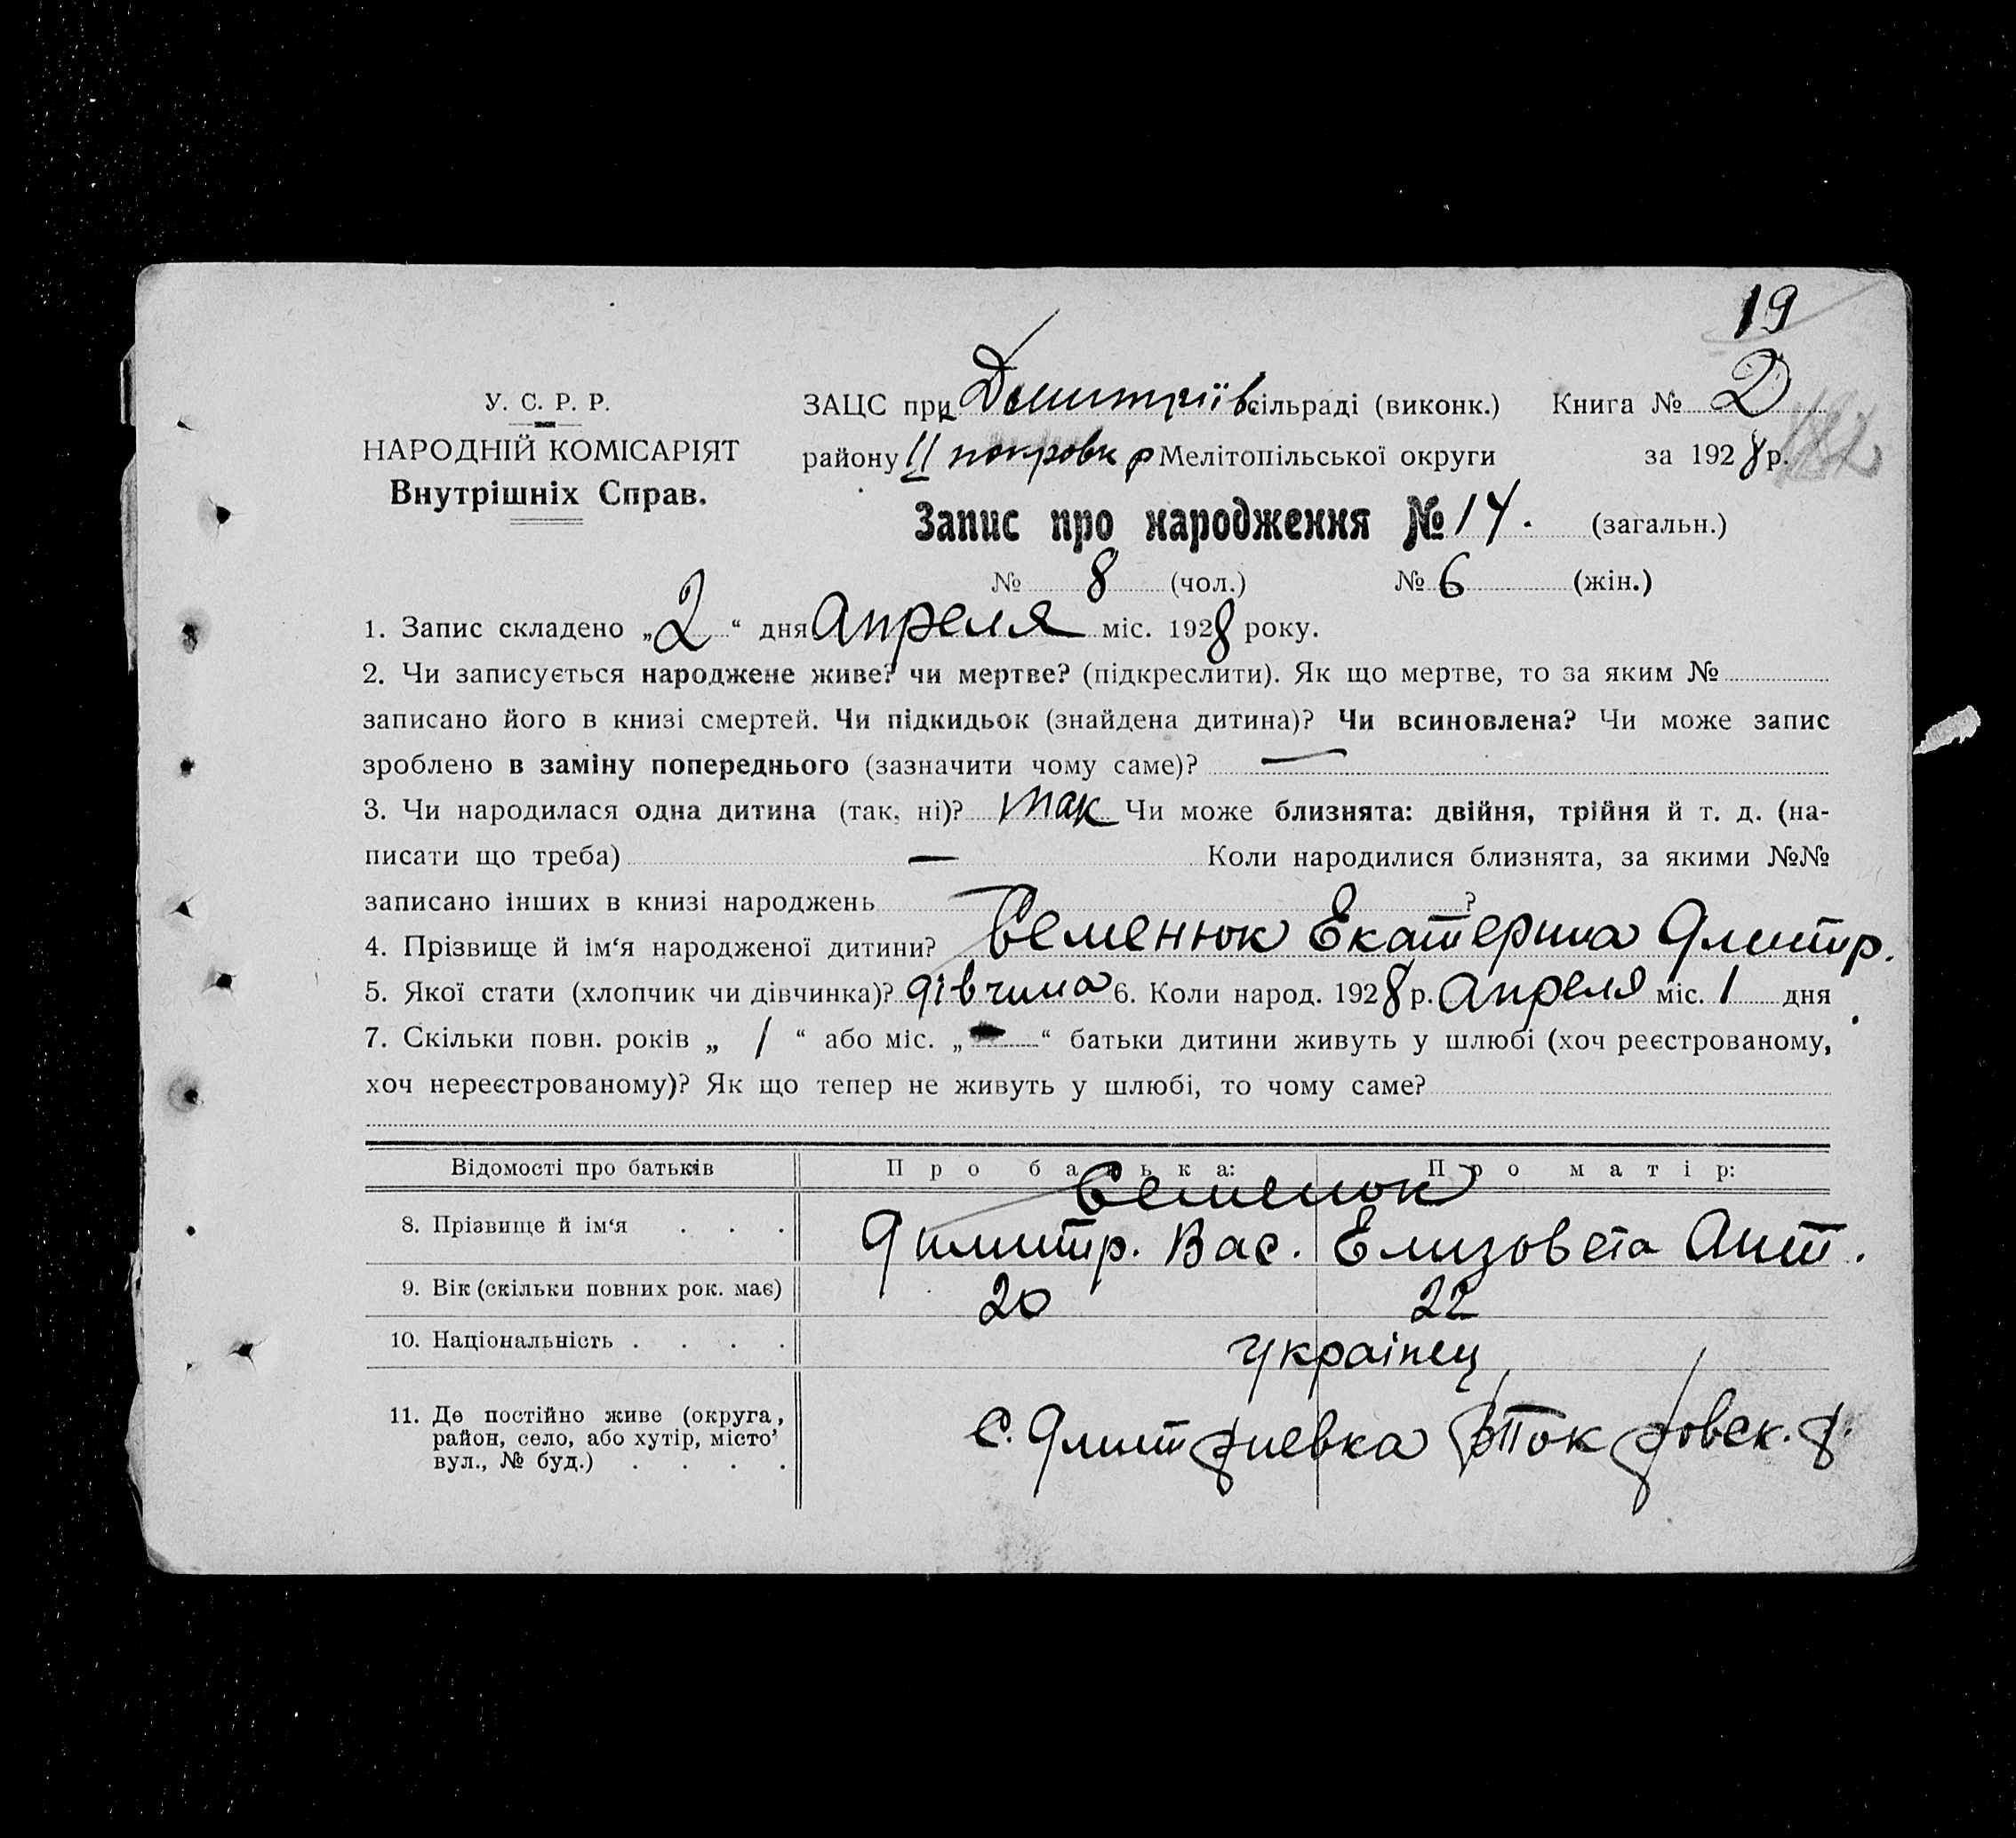 19
У. С. Р. Р.
НАРОДНІЙ КОМІСАРІЯТ
Внутрішніх Справ.
ЗАЦС при Дмитріїв сільраді (виконк.) Книга № 2
району ІІ покровк р Мелітопільської округи за 1928 р.
Запис про народження № 14. (загальн.)
№ 8 (чол.) № 6 (жін.)
1. Запис складено „2“ дня Апреля міс. 1928 року.
2. Чи записується народжене живе? чи мертве? (підкреслити). Як що мертве, то за яким №
записано його в книзі смертей. Чи підкидьок (знайдена дитина)? Чи всиновлена? Чи може запис
зроблено в заміну попереднього (зазначити чому саме)? —
3. Чи народилася одна дитина (так, ні)? так Чи може близнята: двійня, трійня й т. д. (на-
писати що треба) — Коли народилися близнята, за якими №№
записано інших в книзі народжень ?
4. Прізвище й ім‘я народженої дитини? Семенюк Екатерина Дмитр.
5. Якої стати (хлопчик чи дівчинка)? дівчина 6. Коли народ. 1928 р. Апреля міс. 1 дня
7. Скільки повн. років „ 1 “ або міс. „ “ батьки дитини живуть у шлюбі (хоч реєстрованому,
хоч нереєстрованому)? Як що тепер не живуть у шлюбі, то чому саме?
Відомості про батьків Про батька: Про матір:
Семенюк
8. Прізвище й ім‘я . . . Димитр. Вас. Елизовета Ант.
9. Вік (скільки повних рок. має) 20 22
10. Національність . . . . Українец
11. Де постійно живе (округа, район, село, або хутір, місто’ вул., № буд.) . . . . с. Дмитриевка Покровск. р.